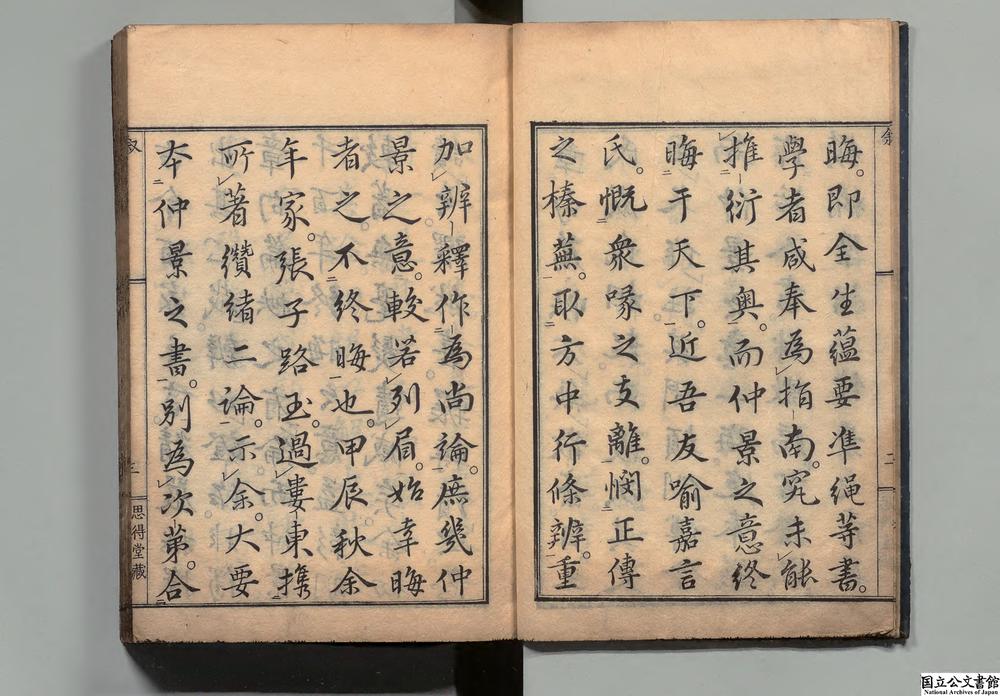 晦。即全生蘊要准繩等書。
學者咸奉為指南。究未能
推衍其奥。而仲景之意終
晦于天下。近吾友喻嘉言
氏。慨衆喙之支離。憫正傳
之榛蕪。取方中行條辨。重
叙
二
加辨釋作為尚論。庶幾仲
景之意。較若列眉。始幸晦
者之不終晦也。甲辰秋余
年家。張子路玉。過婁東携
所著纘緒二論。示余。大要
本仲景之書。別為次第。合
叙
三
思得堂藏
国立公文書館
National Archives of Japan